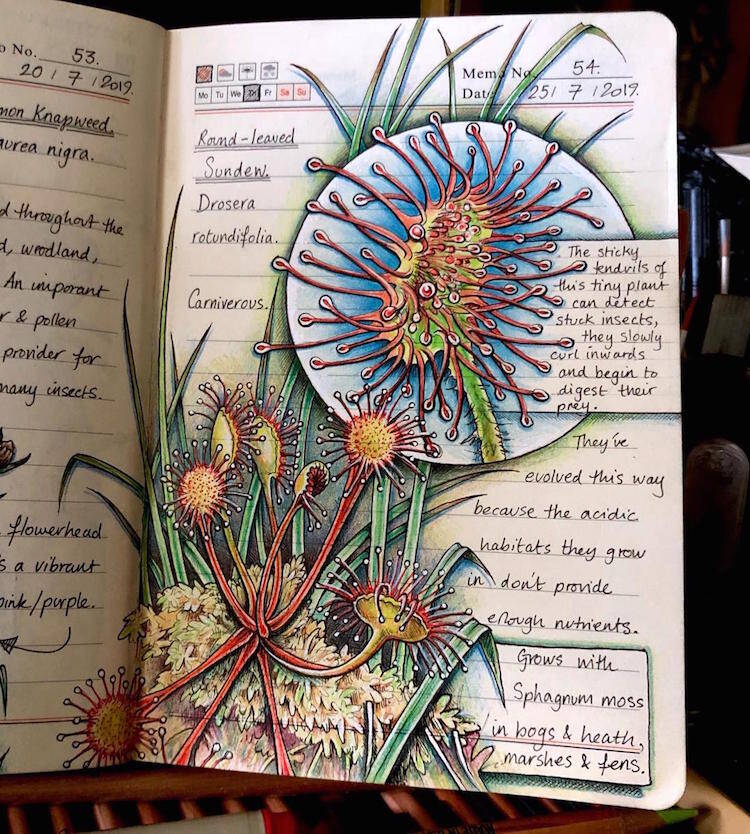 No. 53.
20 / 7 / 2019.
mon Knapweed.
aurea nigra.
d throughout the
d, woodland,
An imporant
r & pollen
provider for
many insects.
flowerhead
s a vibrant
pink/purple.
Memo No. 54.
Mo Tu We Fr Sa Su
Date 25 / 7 / 2019.
Round-leaved
Sundew.
Drosera
rotundifolia.
Carniverous.
The sticky
tendrils of
this tiny plant
can detect
stuck insects,
they slowly
curl inwards
and begin to
digest their
prey.
They've
evolved this way
because the acidic
habitats they grow
in don't provide
enough nutrients.
Grows with
Sphagnum moss
in bogs & heath,
marshes & fens.